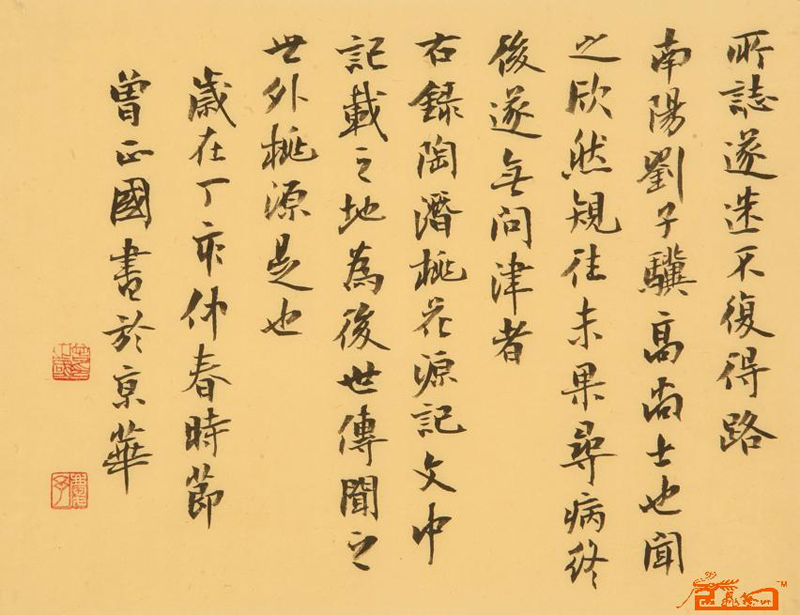 所誌遂迷不復得路
南陽劉子驥高尚士也聞
之欣然規往未果尋病終
後遂無問津者
右錄陶潛桃花源記文中
記載之地為後世傳聞之
世外桃源是也
歲在丁亥仲春時節
曾正國書於京華